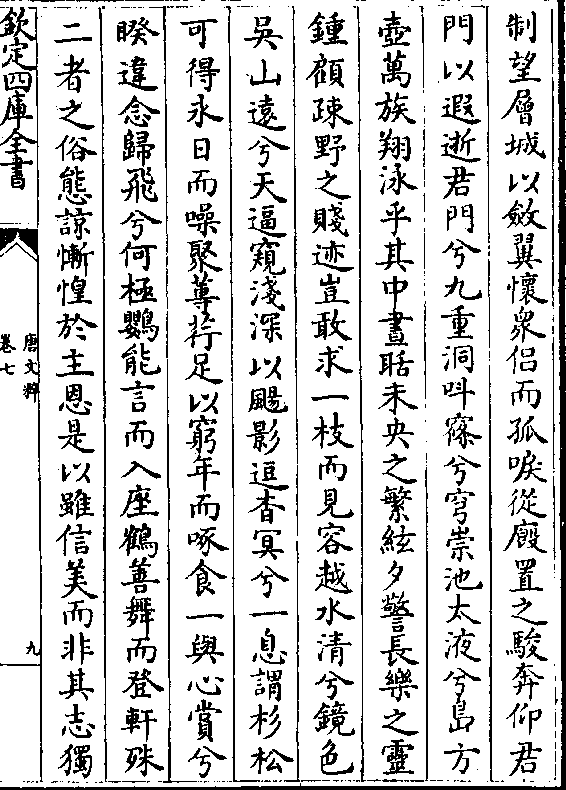 制望層城以斂翼懷衆侣而孤唳從廏置之駿奔仰君
門以遐逝君門兮九重洞呌窱兮穹崇池太液兮島方
壺萬族翔泳乎其中晝聒未央之繁絃夕警長樂之靈
鍾顧疎野之賤迹豈敢求一枝而見容越水清兮鏡色
吳山遠兮天逼窺淺深以颺影逗杳冥兮一息謂杉松
可得永日而噪聚蓴荇足以窮年而啄食一與心賞兮
睽違念歸飛兮何極鸚能言而入座鶴善舞而登軒殊
二者之俗態諒慚惶於主恩是以雖信美而非其志獨
欽定四庫全書
唐文粹
卷七
九